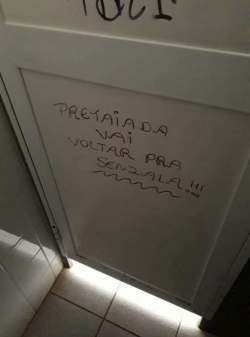 PRETAIADA
VAI
VOLTAR PRA
SENZALA!!!